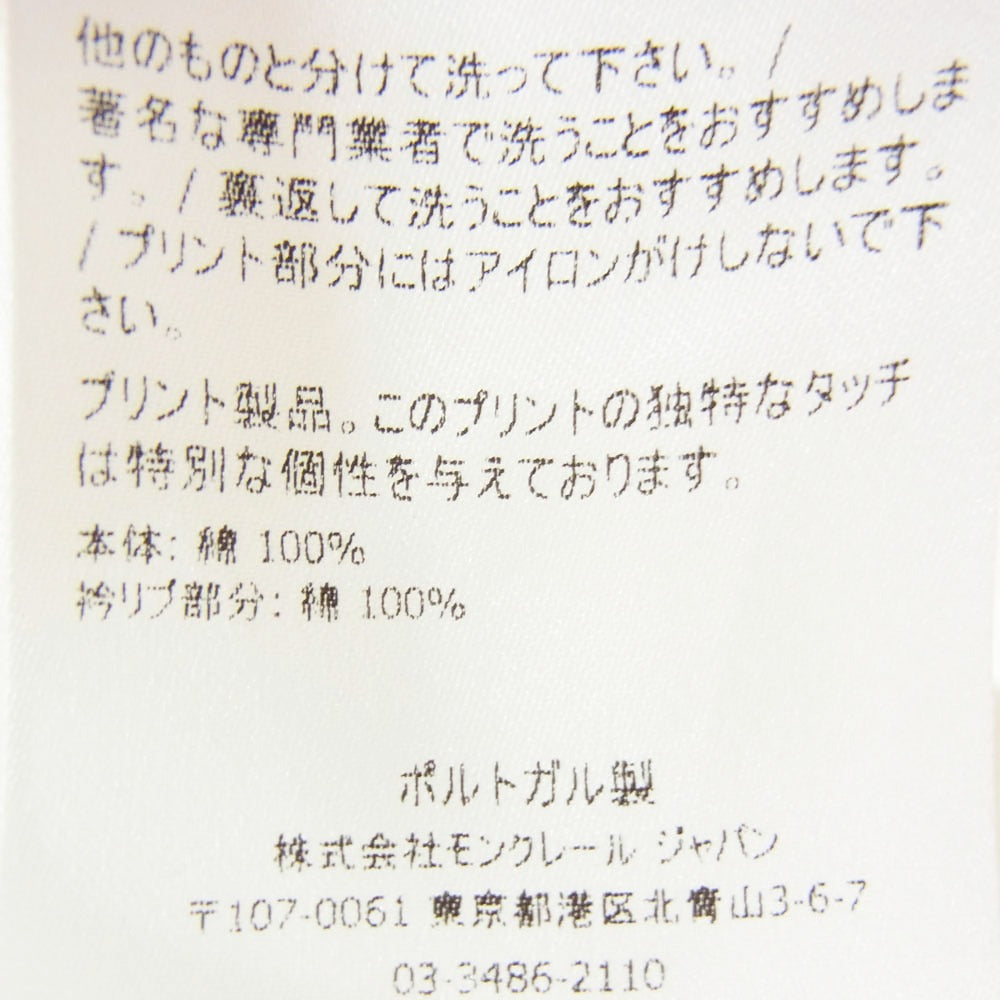 他のものと分けて洗って下さい。/
著名な専門業者で洗うことをおすすめしま
す。/ 裏返して洗うことをおすすめします。
/ プリント部分にはアイロンがけしないで下
さい。
プリント製品。このプリントの独特なタッチ
は特別な個性を与えております。
本体: 綿 100%
衿リブ部分: 綿 100%
ポルトガル製
株式会社モンクレール ジャパン
〒107-0061 東京都港区北青山3-6-7
03-3486-2110